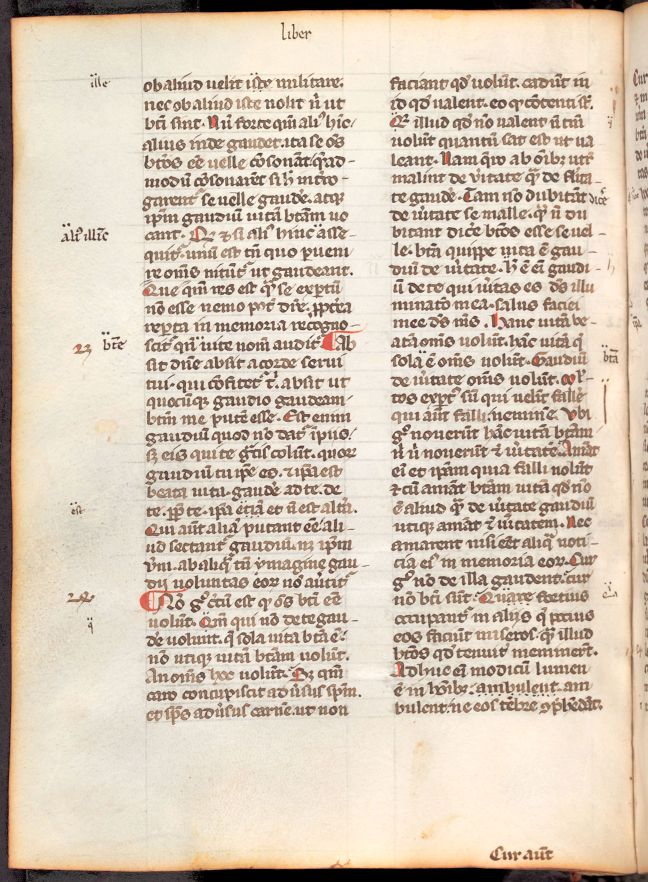 liber
ille
ob aliud velit iste militare.
nec ob aliud iste nolit n̄ ut
bt̄i sint. Nū forte qm̄ ali᷒ hīc
alius inde gaudet. ita se os̄
bt̄os ee̅ velle cōsonant. quēad-
modū cōsonarēt si h̄ intro-
garent᷑ se velle gaudē. atq̨
ip̄m gaudiū uitā bt̄am uo
ali᷒ illīc
cant. Qd̄ & si ali᷒ hinc asse-
quit᷑. unū est tn̄ quo p̱ueni
re oms̄ nitūt᷑ ut gaudeant.
Que qm̄ res est qm̄ se exp̱tū
nō esse nemo pot᷑ dice᷑. p̱p̄t̄ea
rep̱ta in memoria recogno-
scit᷑ qn̄ uite nom̄ audit᷑. Ab
23 bt̄e
sit dn̄e absit a corde servi
tui. qui cōfitet᷑ t̄. absit ut
quocūq̨ gaudio gaudeam
bt̄m me putē esse. Est enim
gaudiū quod nō dat᷑ īpijs.
sꝫ eis qui te gr̄tis colūt. quor᷑
gaudiū tu ip̄e es. & ip̄a est
beata uita. gaudē ad te. de
est
te. pp̄ te. ip̄a ē et n̄ est alt̄a.
Qui aut̄ aliā putant ee̅. ali-
ud sectant᷑ gaudiū. nꝫ ip̄m
v̄m. ab aliq̄ tn̄ ymagine gau-
dij voluntas eor᷑ nō av̄tit᷑.
Nō g̊ c̄tū est qd̄ os̄ bt̄i ee̅
volūt. Qm̄ qui nō de te gau-
de᷑ volunt. q̄ sola uita bt̄a ē.
nō utiq̨ uitā bt̄am volūt.
An oms̄ hoc volūt. Sꝫ qm̄
caro concupiscit adv̄sus sp̄m.
et sp̄s adv̄sus carnē. ut non
faciant qd̄ volūt. cadūt in
id qd̄ valent. eo q̨ cōtenti st̄.
Qꝫ illud qd̄ nō valent n̄ tm̄
volūt quantū sat est ut va
leant. Nam q̄ro ab oīb᷒ utꝝ
malint de v̄itate q̄m de falsita-
te gaudē. Tam nō dubitāt dice᷑
de v̄itate se malle. q̄m n̄ du
bitant dice᷑ bt̄os esse se vel-
le. bt̄a quippe uita ē gau-
diū de v̄itate. h̄ ē eī gaudi-
ū de te qui v̄itas es ds̄ illu
minatō mea. salus faciei
mee ds̄ ms̄. Hanc uitā be-
atā oms̄ volūt. hāc uitā q̄
sola ē oms̄ volūt. Gaudiū
bt̄a
de v̄itate oms̄ volūt. Ml̄-
tos exp̱t᷒ sū qui velīt falle᷑
qui aūt falli. neminē. Ubi
g̊ noverūt hāc uitā bt̄am
n̄ ubi noverūt & v̄itatē. Amāt
eī et ip̄am quia falli nolūt
& cū amāt bt̄am uitā qd̄ nō
ē aliud q̄m de v̄itate gaudiū
utiq̨ amāt & v̄itatem. Nec
amarent nisi eēt aliq̄ noti-
cia ei᷒ in memoria eor᷑. Cur
g̊ nō de illa gaudent. cur
nō bt̄i sūt. Quare fortius
occupant᷑ in alijs q̄ poti᷒
eos faciūt miseros. q̄m illud
bt̄os qd̄ tenuit᷑ memīert᷑.
Adhuc eī modicū lumen
ē in hōīb᷒. ambulent. am
bulent. ne eos tēbre ꝯp̱hēdāt.
Cur aut̄